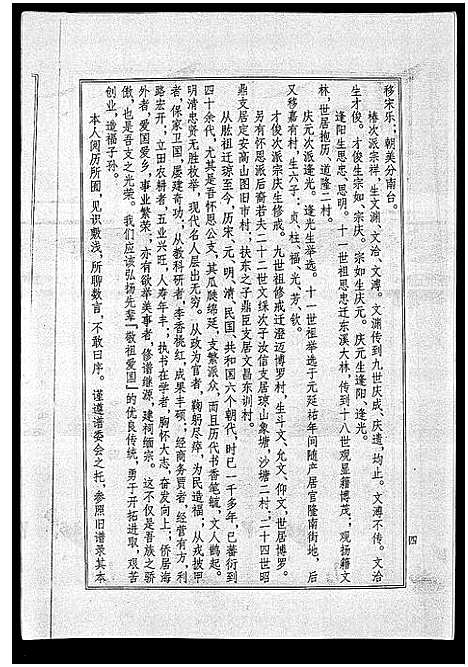 移宋乐；朝美分南台。
椿次派宗祥，生文渊、文治、文溥。文渊传到九世庆成、庆遗，均止。文溥不传。文治
生才俊。才俊生宗如、宗庆。宗如生庆元。庆元生逢阳、逢光。
逢阳生思忠、思明。十一世祖思忠迁东溪大林，传到十八世观显籍博茂；观扬籍文
林，世居抱历、道隆二村。
庆元次派逢光。逢光生举选。十一世祖举选于元延祐年间随产居官隆南街地，后
又移嘉有村，生六子：贞、柱、福、光、芳、钦。
才俊次派宗庆生修戒。九世祖修戒迁澄迈博罗村，生斗文、允文、仰文，世居博罗。
另有怀思派后裔若夫二十二世文缫次子汝信支居琼山象塘，沙塘二村，二十四世昭
鼎支居定安高山图旧市村；扶东之子鼎臣支居文昌东训村。
从肱祖迁琼至今，历宋、元、明、清、民国、共和国六个朝代，时已一千多年，已蕃衍到
四十余代，尤其是吾怀思公支，其瓜瓞绵延，支繁派众，而且历代书香笔毓，文人鹤起。
明清忠贤不胜枚举，现代名人层出无穷。从政为官者，鞠躬尽瘁，为民造福；从戎披甲
者，保家卫国，屡建奇功，从教科研者，李香桃红，成果丰硕；经商务贾者，经营有方，利
路宏开；立田农耕者，五业兴旺，人寿年丰；执书在学者，胸怀大志，奋发向上；侨居海
外者，爱国爱乡，事业繁荣；亦有欲举美事者，修谱继源，建祠缅宗。这不仅是吾族之骄
傲，也是吾支之光荣。我们应该弘扬先辈「敬祖爱国」的优良传统，勇于开拓进取，艰苦
创业，造福子孙。
本人阅历所囿，见识敷浅，所聊数言，不敢曰序。谨遵谱委会之托，参照旧谱录其本
四